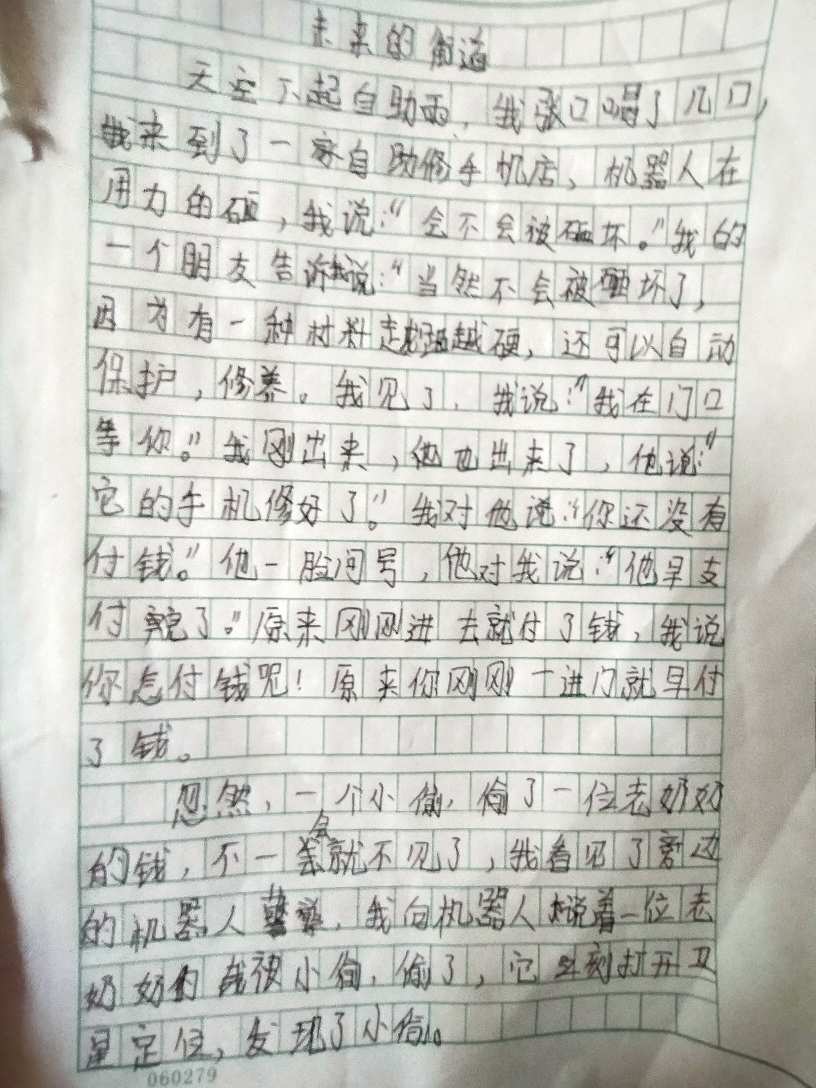 未来的街道
天空下起自助雨，我张口喝了几口，
我来到了一家自助修手机店，机器人在
用力的砸，我说：“会不会被砸坏。”我的
一个朋友告诉我说：“当然不会被砸坏了，
因为有一种材料越硬，还可以自动
保护，修养。我见了，我说：“我在门口
等你。”我刚出来，他也出来了，他说：“
它的手机修好了。”我对他说：“你还没有
付钱。”他一脸问号，他对我说：“他早支
付完了。”原来刚刚进去就付了钱，我说
你怎付钱呢！原来你刚刚一进门就早付
了钱。
忽然，一个小偷，偷了一位老奶奶
的钱，不一会就不见了，我看见了旁边
的机器人警察，我向机器人说着一位老
奶奶的钱被小偷，偷了，它立刻打开卫
星定位，发现了小偷。
060279